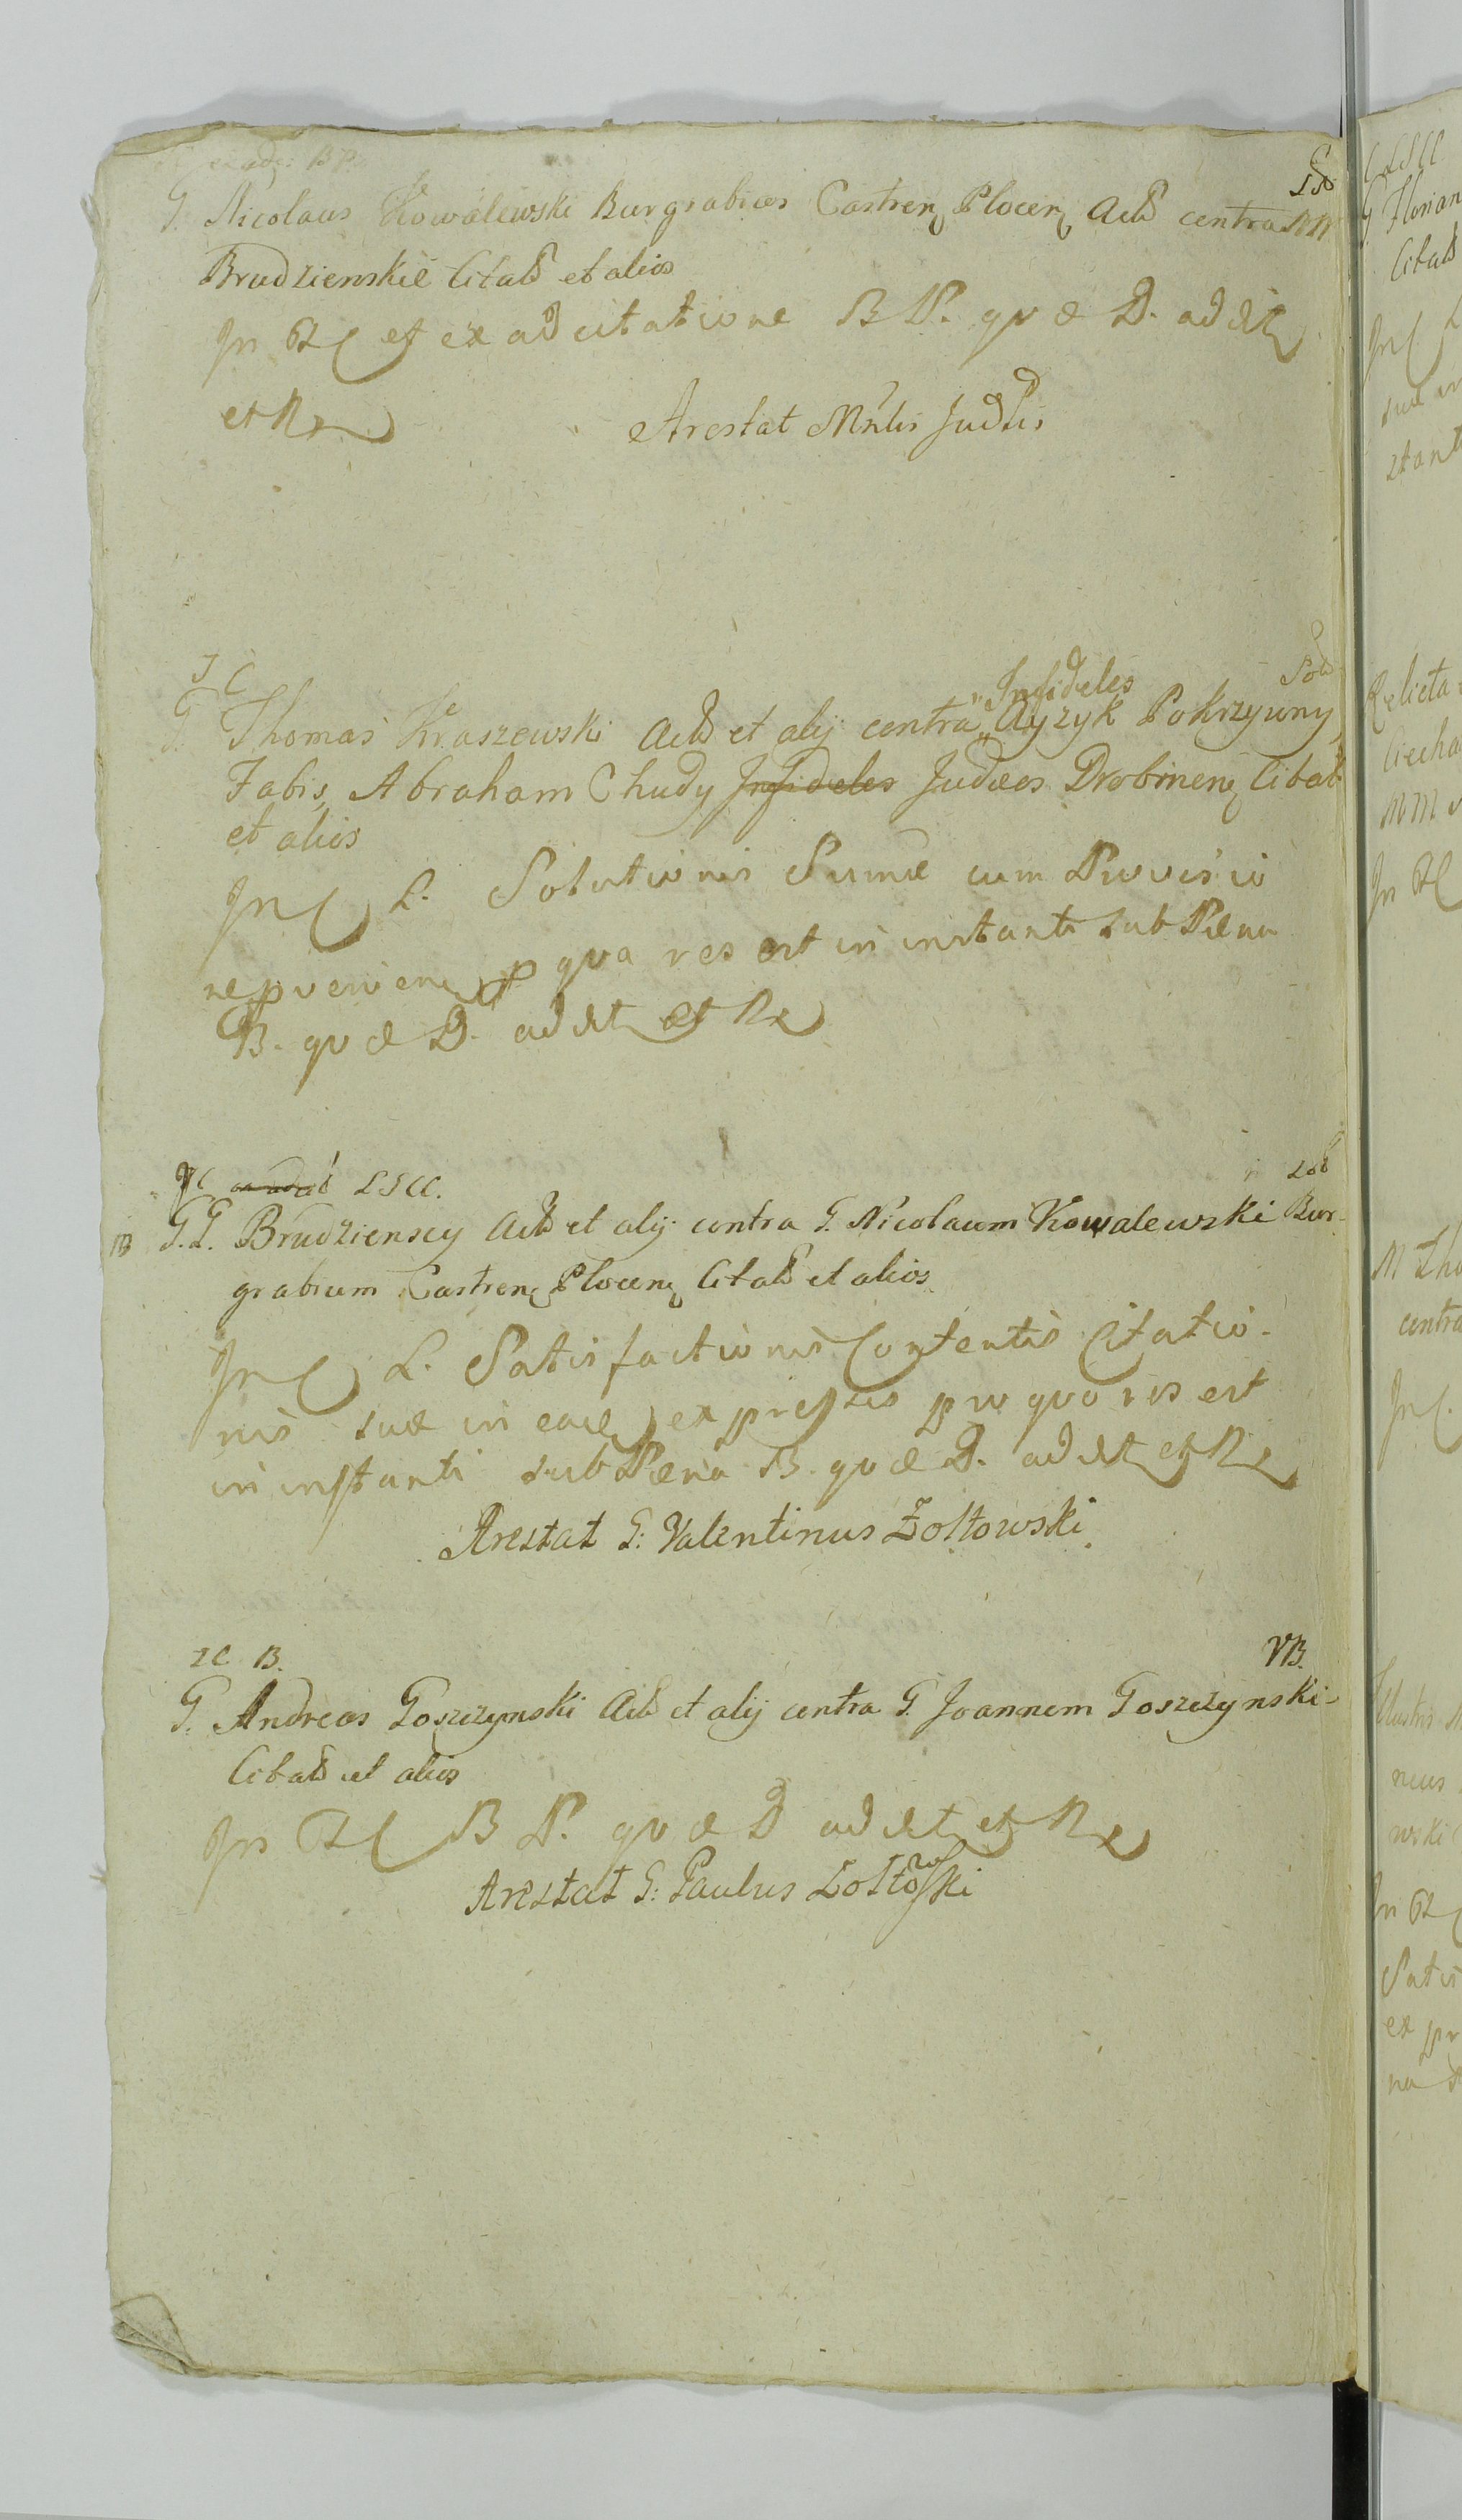 G. Nicolaus Kowalewski Burgrabius Castren Plocen Actd contra NN
Brudzienskie Citatd et alios
In RC et ex adcitatione B P. quæ D. addet
et R
Arestat Mnlis Judlis
I C
G. Thomas Kraszewski Actd et alij contra Infideles Ayzyk Pokrzywny
Fabis, Abraham Chudy Infideles Judæos Drobinen Citat
et alios
In C L. Solutionis Sumæ cum Provisio
ne pveniens p qva res est in instanti sub Pæna
B. qvæ D. addet et R
IC LSCC.
G.G. Brudzienscy Actd et alij contra G. Nicolaum Kowalewski Bur-
grabium Castren Plocen Citatd et alios
In C L. Satisfactionis Contentis Citatio-
nis suæ in eade expressis pro quo res est
in instanti sub Pæna B. qvæ D. addet et R
Arestat G: Valentinus Zoltowski
IC B. VB.
G. Andreas Goszczynski Actd et alij contra G. Joannem Goszczynski
Citatd et alios
In RC B P. qvæ D addet et R
Arestat G: Paulus Zoltowski